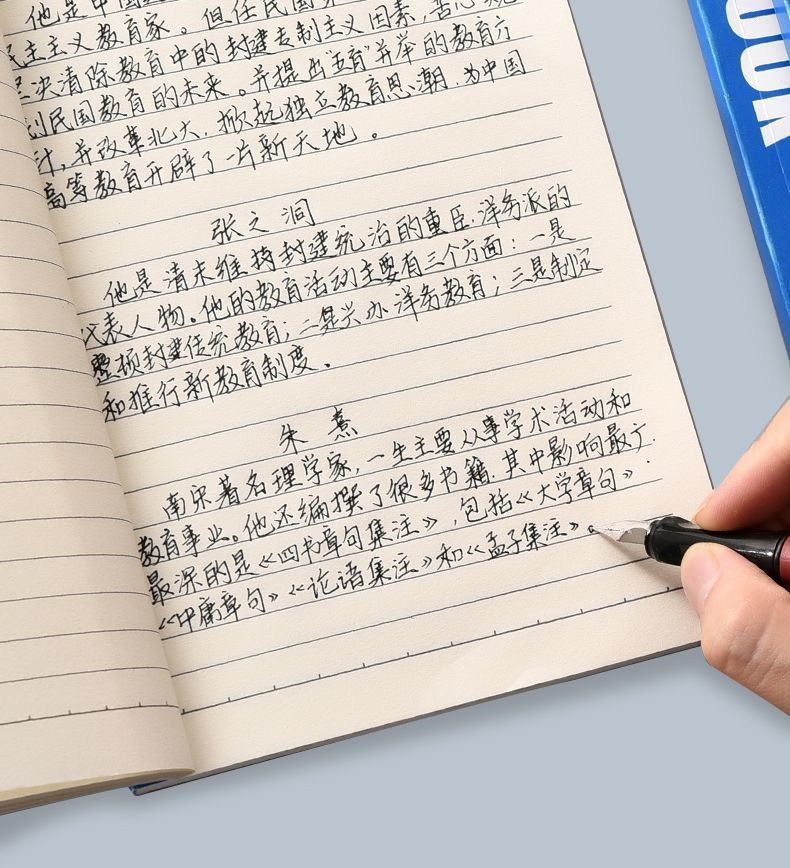 他是中国
民主主义教育家。但任民国
坚决清除教育中的封建专制主义因素，苦心规
划民国教育的未来。并提出“五育”并举的教育方
针，并改革北大，掀起独立教育思潮，为中国
高等教育开辟了一片新天地。
张之洞
他是清末维持封建统治的重臣，洋务派的
代表人物。他的教育活动主要有三个方面：一是
整顿封建传统教育；二是兴办洋务教育；三是制定
和推行新教育制度。
朱熹
南宋著名理学家，一生主要从事学术活动和
教育事业。他还编撰了很多书籍，其中影响最广、
最深的是《四书章句集注》，包括《大学章句》、
《中庸章句》《论语集注》和《孟子集注》。
OOK